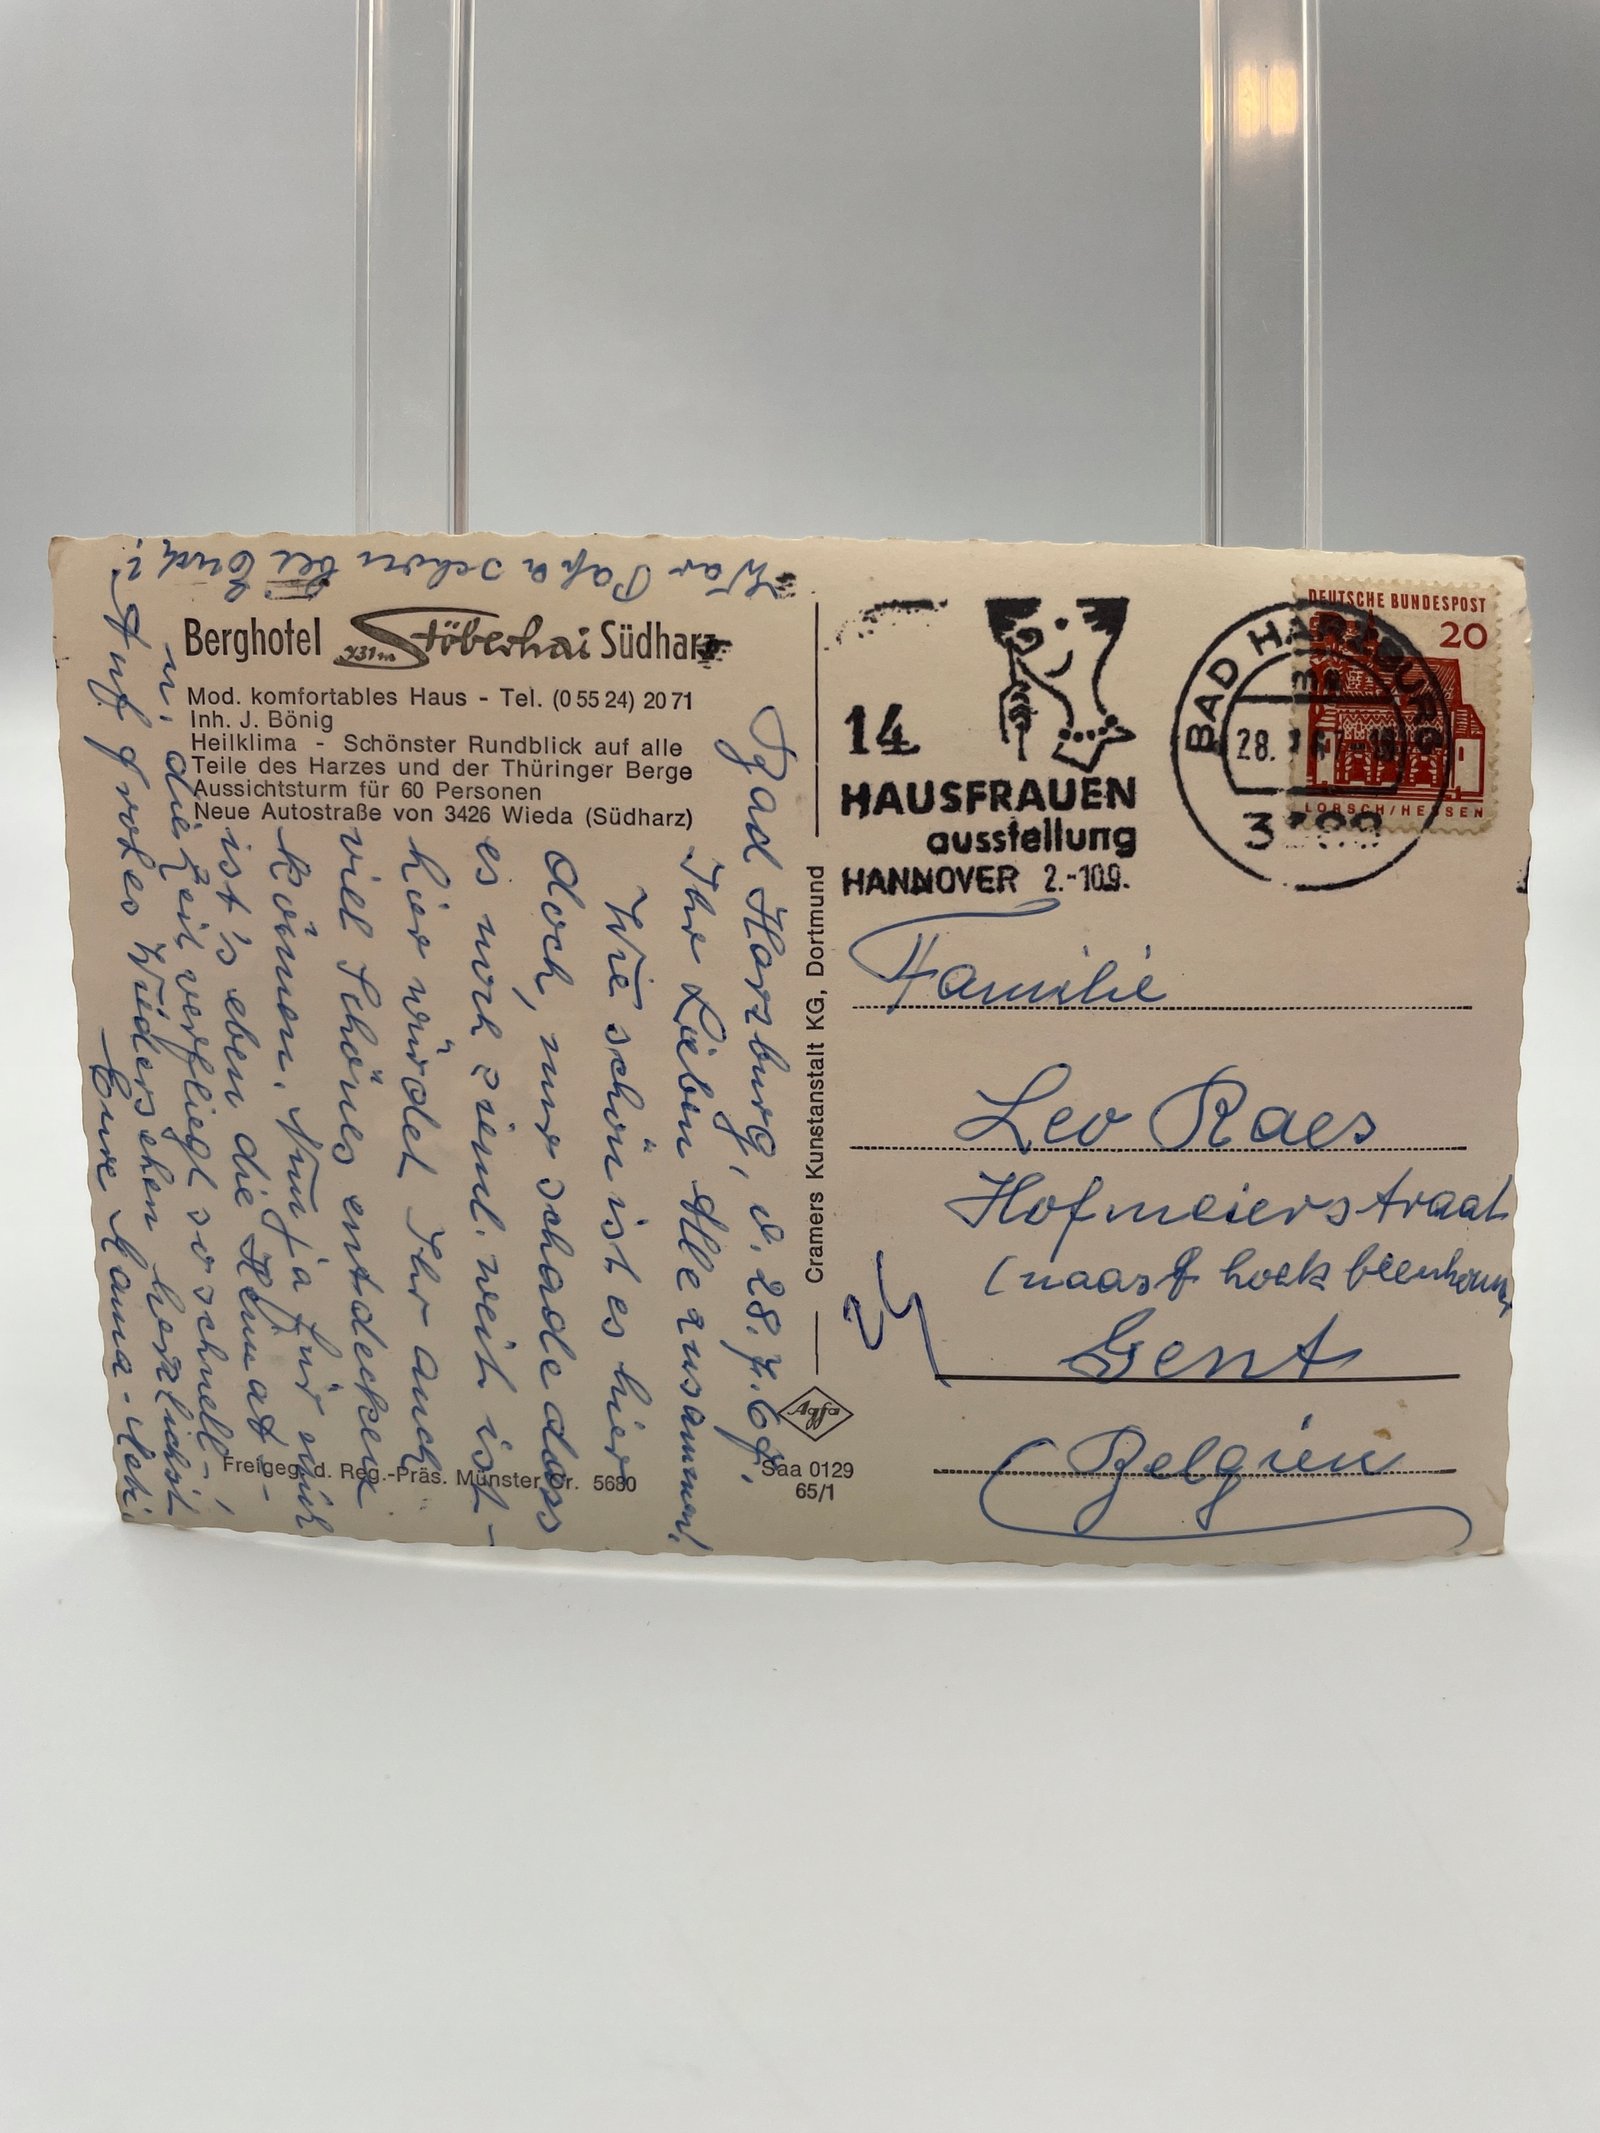 Berghotel Stöberhai Südharz
731m
Mod. komfortables Haus - Tel. (0 55 24) 20 71
Inh. J. Bönig
Heilklima - Schönster Rundblick auf alle
Teile des Harzes und der Thüringer Berge
Aussichtsturm für 60 Personen
Neue Autostraße von 3426 Wieda (Südharz)
Bad Harzburg, d. 28.7.67.
Ihr Lieben Alle zusammen!
Wie schön ist es hier
doch, nur schade dass
es noch zieml. weit ist -
hier würdet Ihr auch
viel Schönes entdecken
können. Nun ja für mich
ist's eben die Heimat -
u. die Zeit verfliegt so schnell -!
Auf frohes Wiedersehen herzlichst
Eure Mama -
War Papa schon bei Euch?
Freigeg. d. Reg.-Präs. Münster Nr. 5680
Cramers Kunstanstalt KG, Dortmund
Agfa
Saa 0129
65/1
14
HAUSFRAUEN
ausstellung
HANNOVER 2.-10.9.
BAD HARZBURG
28.
DEUTSCHE BUNDESPOST
20
LORSCH/HESSEN
Familie
Leo Raes
Hofmeierstraat
(naast hoek beenhouw
Gent
Belgien